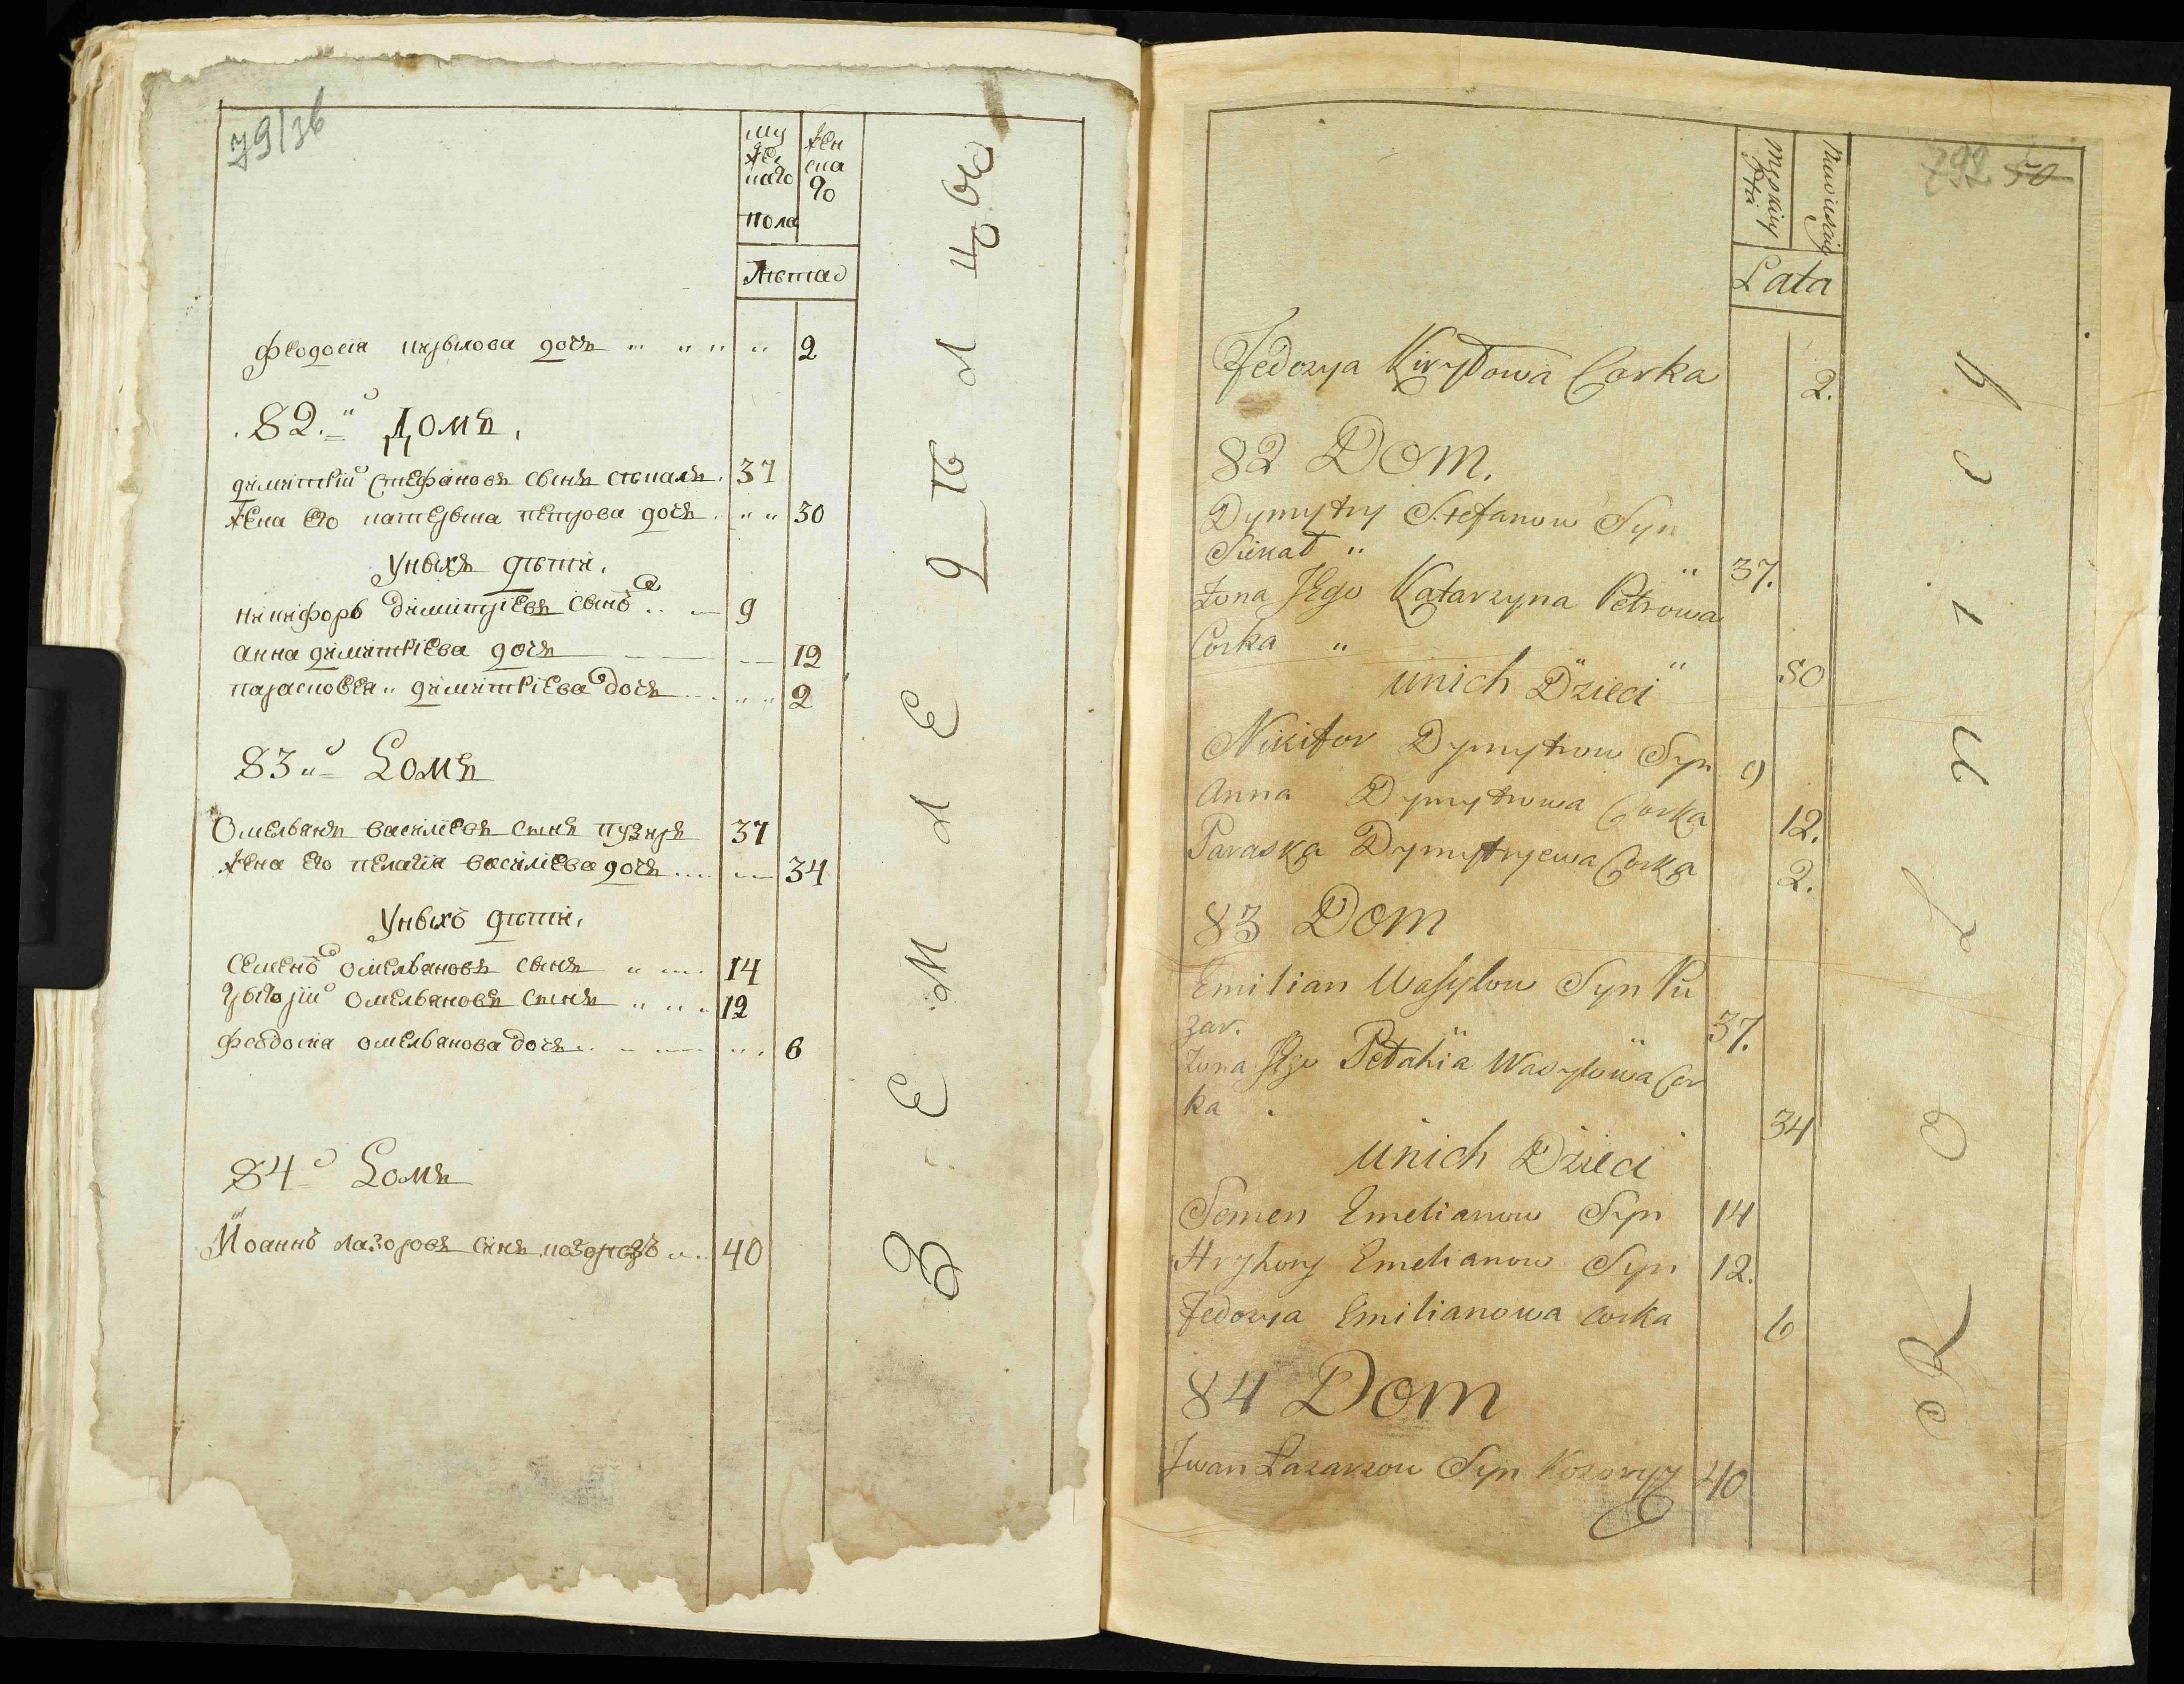 79/36
Му
же
каго
жен
ска
го
пола
Лѣта
феодосія кирылова дочь 2
82. Домъ.
димитрій Стефановъ сынъ стѣкалъ. 37
жена его катерына петрова дочь 30
Уныхъ дѣти.
никифоръ димитріевъ сынъ 9
анна димитріева дочь 12
парасковея димитріева дочь 2
83 Домъ
Омельянъ василіевъ сынъ пузиръ 37
жена его пелагія василіева дочь 34
Уныхъ дѣти.
Семенъ омельяновъ сынъ 14
Григорій омельяновъ сынъ 12
феодосія омельянова дочь 6
84 Домъ
Іоаннъ лазоровъ синъ 40
ЗЕМЛЕ
792 50
Męskiey
Płci
Niewieściey
Lata
Fedozya Kiryłowa Corka 2.
82 Dom.
Dymytry Stefanow Syn
Siekał 37.
Żona Jego Katarzyna Petrowa
Corka 50
unich Dzieci
Nikifor Dymytrow Syn 9
Anna Dymytrowa Corka 12.
Paraska Dymytryewa Corka 2.
83 Dom
Emilian Wasylow Syn Pu
zar. 37.
Żona Jego Pełahia Wasylowa Cor
ka 34
unich Dzieci
Semen Emelianow Syn 14
Hryhory Emelianow Syn 12.
Fedozya Emilianowa Corka 6
84 Dom
Jwan Łazarzow Syn Kozoryz 40
Rolnicy